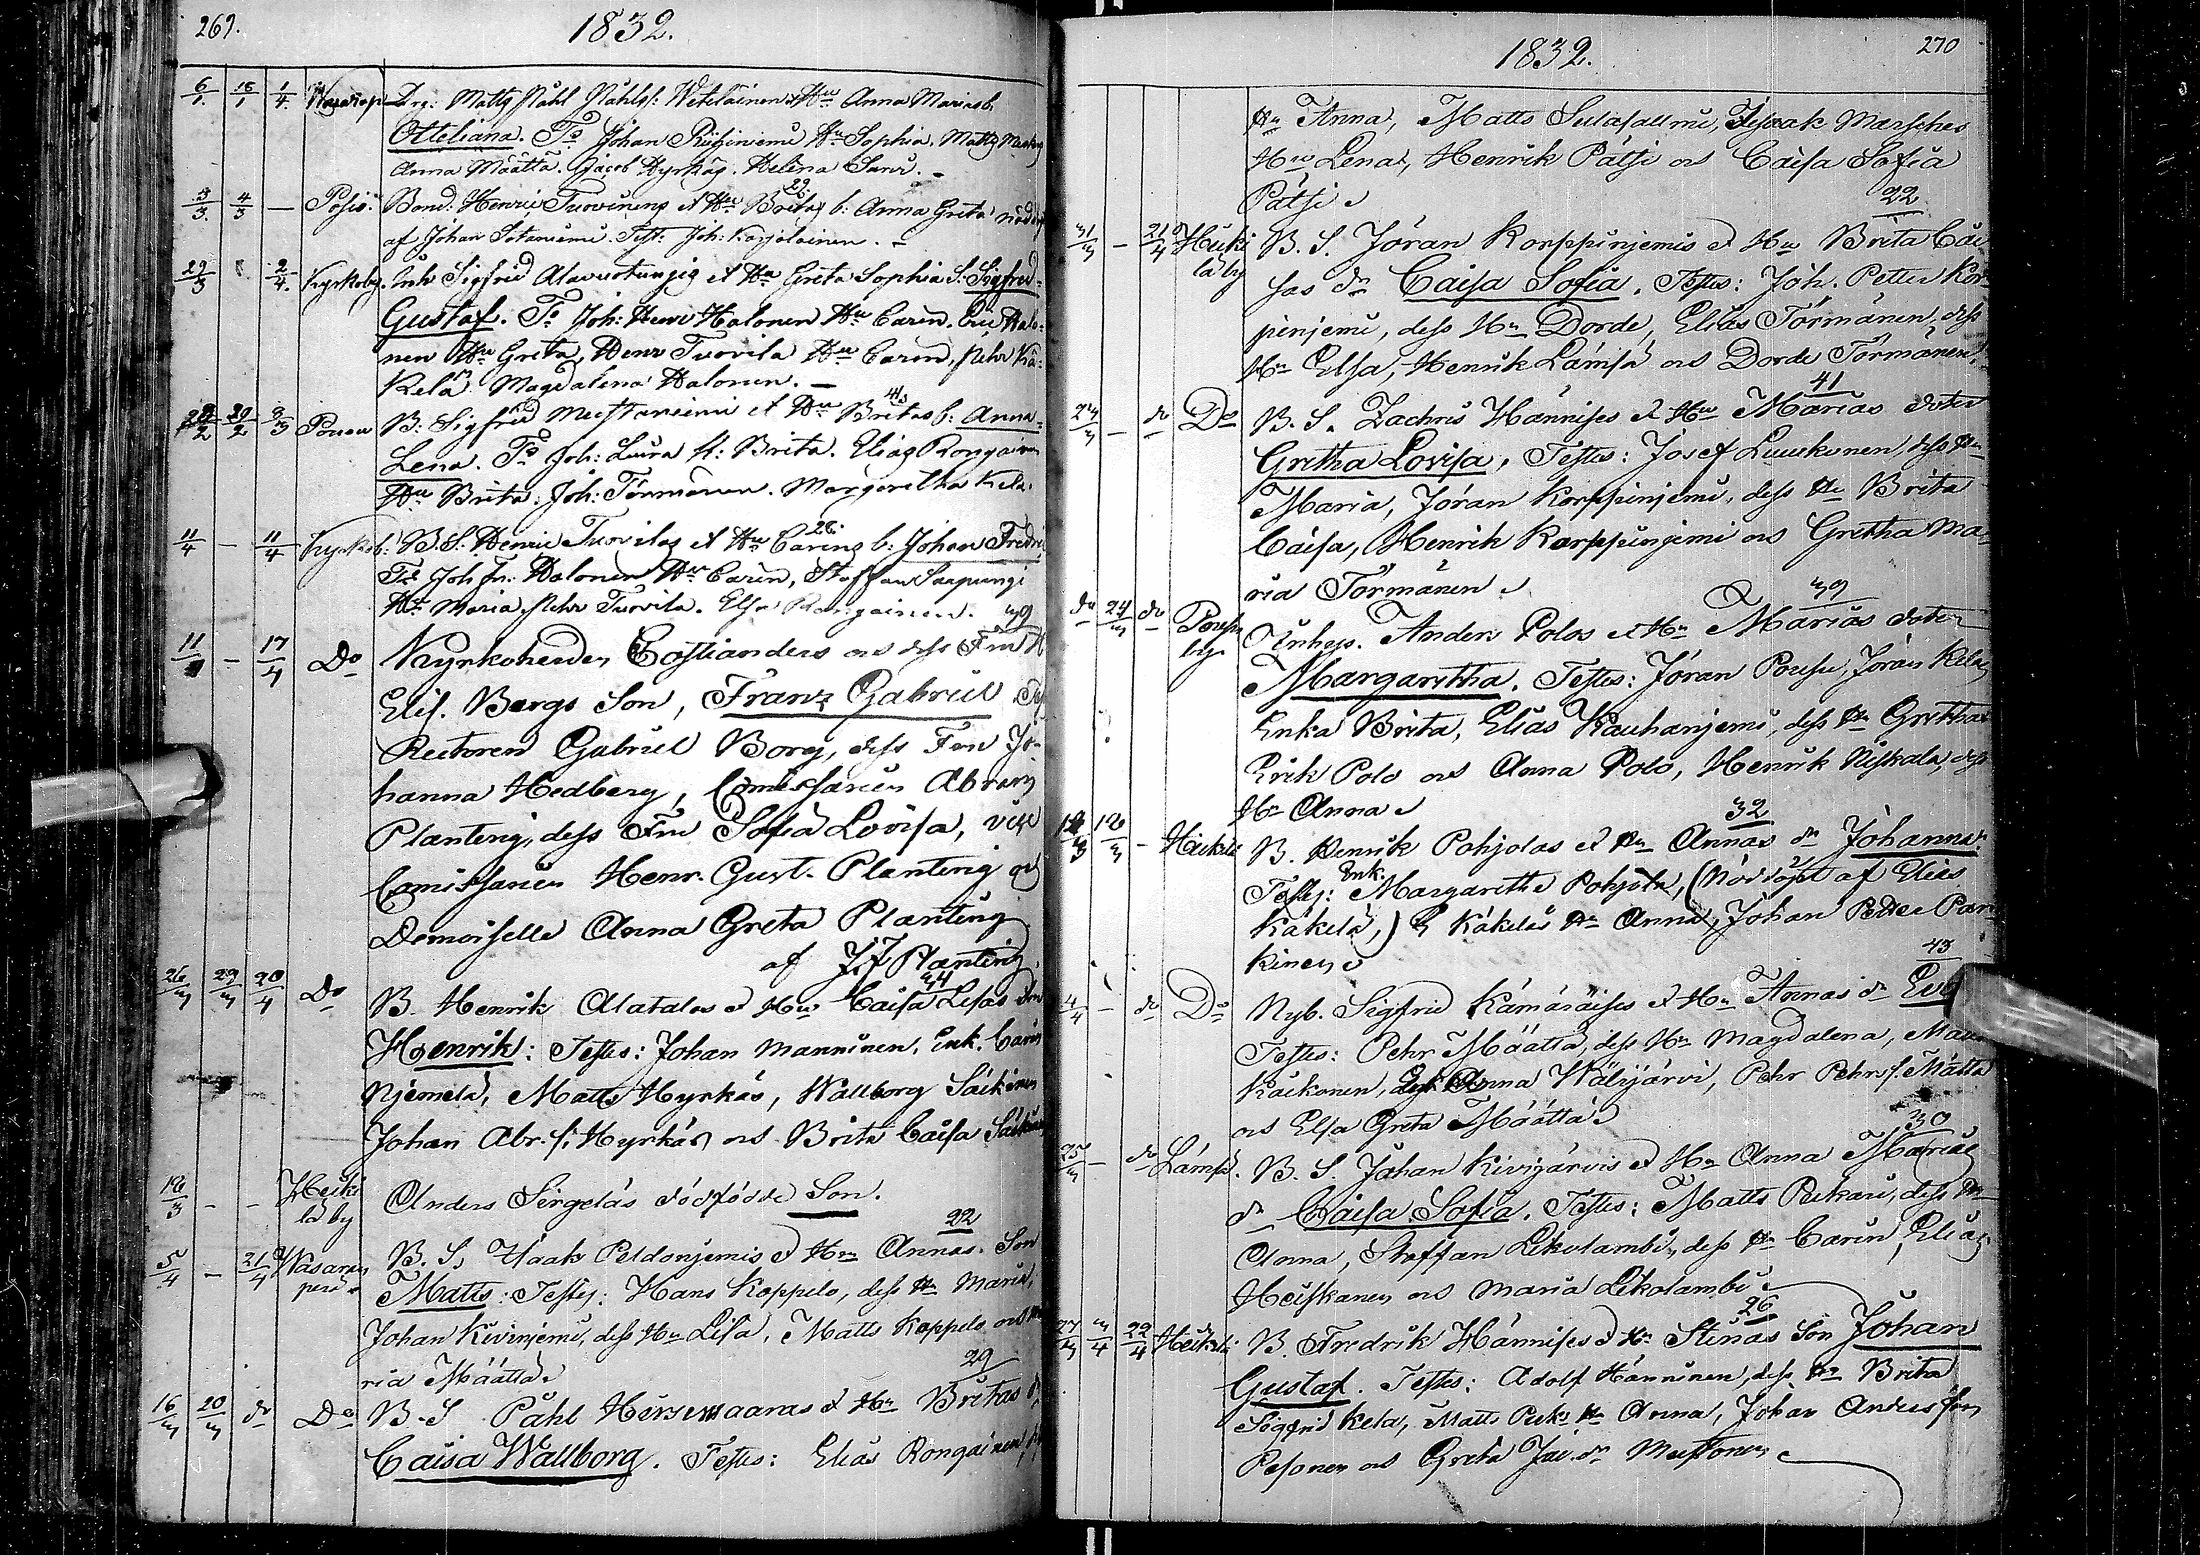 269.
1832.
6/1. 18/1 1/4. Drg: Matts Påhl Påhlss: Wetelainen et Hu Anna Marias b.
Otteliana. Ts Johan Hu Sophia. Matts
Anna Määttä. Jacob Hyrkäs. Helena
3/3 4/3 — Posio: Bond: Henric Turvinens et Hu Britas 29. b: Anna Greta nöddöpt
af Johan Sotaniemi. Test: Joh: Karjalainen. —
29/3 2/4. Kyrkoby. Inh Sigfrid et Hu Greta Sophia S: Sigfred
Gustaf. Ts Joh: Henr Halonen Hu Carin. Eric Halo-
nen Hu Greta, Henr Turvila Hu Carin, Pehr Kä-
kelä. Magdalena Halonen. —
29/2 9/3 Posion B: Sigfrid et Hu Britas b: Anna
Lena. Ts Joh: Laura h: Brita. Elias Rongainen
Hu Brita. Joh: Törmänen. Margaretha Kela.
11/4 — 11/4 Kyrkob: B. S: Henric Turvilas et Hu Carins 28. b: Johan Fredric
Ts Joh Fr: Halonen Hu Carin, Staffan Saapungi
Hu Maria, Pehr Turvila. Elsa Rongainen.
39
11 — 17/4 Do Kyrkoherden Costianders och dess Fru H
Elis. Bergs Son, Franz Gabriel
Rectoren Gabriel Borg, dess Fru Jo-
hanna Hedberg, Comissarien Abram
Planting, dess Fru Sofia Lovisa, vice
Comissarien Henr. Gust. Planting och
Demoiselle Anna Greta Planting
af J. F Planting.
26/3 29/3 20/4 Do B. Henrik Alatalos et Hu Caisa Lisas 34 Son
Henrik: Testes: Johan Manninen, Enk. Carin
Njemelä, Matts Hyrkäs, Wallborg Säkkinen
Johan Abr. s: Hyrkäs och Brita Caisa
16/3 — — Heiki
lä by Anders Sirgeläs dödfödde Son.
22
5/4 — 21/4 Wasaran
perä B. S. Isaak Peldonjemis et Hu Annas Son
Matts: Testes: Hans Koppelo, dess Hu Maria,
Johan Kivinjemi, dess Hu Lisa, Matts Koppelo och Ma
ria Määttä
29
16/3 20/3 do Do B. S. Påhl Hirsewaaras et Hu Britas dr
Caisa Wallborg. Testes: Elias Rongainen,
1832.
270
Hu Anna, Matts Sulasallmi, Isaak Marsches
Hu Lena, Henrik Pätsi och Caisa Sofia
Pätsi
22
31/3 — 21/4 Heiki
lä by B. S. Jöran Korppinjemis et Hu Brita Cai
sas dr Caisa Sofia. Testes: Joh. Petter Kor-
pinjemi, dess Hu Dorde, Elias Törmänen, dess
Hu Elsa, Henrik Lämsä och Dorde Törmänen.
41
24/3 — do Do B. S. Zachris Hännises et Hu Marias doter
Gretha Lovisa, Testes: Josef Luukkonen, dess Hu
Maria, Jöran Korppinjemi, dess Hu Brita
Caisa, Henrik Korppinjemi och Gretha Ma-
ria Törmänen
39
do 24/3 do Posio
by Inhys. Anders Polos et Hu Marias doter
Margaretha. Testes: Jöran Jöran Kela
Enka Brita, Elias Kauhanjemi, dess Hu Gretha
Erik Polo och Anna Polo, Henrik Niskala, dess
Hu Anna
32
12/3 16/3 — Heikilä B. Henrik Pohjolas et Hu Annas dr Johanna:
Testes: Enk. Margaretha Pohjola, (Nöddöpt af Elias
Käkelä,) E Käkeläs Hu Anna, Johan Petter Par-
kinen
43
4/4 — do Do Nyb. Sigfrid Kämäräises et Hu Annas dr Eva
Testes: Pehr Määttä, dess Hu Magdalena,
Kaikonen, Anna Wälijärvi, Pehr Pehrs. s. Mättä
och Elsa Greta Määttä
30
25/3 — do Lämsä. B. S. Johan Kivijärvis et Hu Anna Marias
dr Caisa Sofia. Testes: Matts Pekari, dess Hu
Anna, Staffan Likolambi, dess Hu Carin, Elias
Heiskanen och Maria Likolambi
26
27/3 3/4 22/4 Heikilä B. Fredrik Hännises et Hu Stinas Son Johan
Gustaf. Testes: Adolf Hänninen, dess Hu Brita
Sigfrid Kela, Matts Hu Anna, Johan Andersson
Pesonen och Greta dr Mustonen